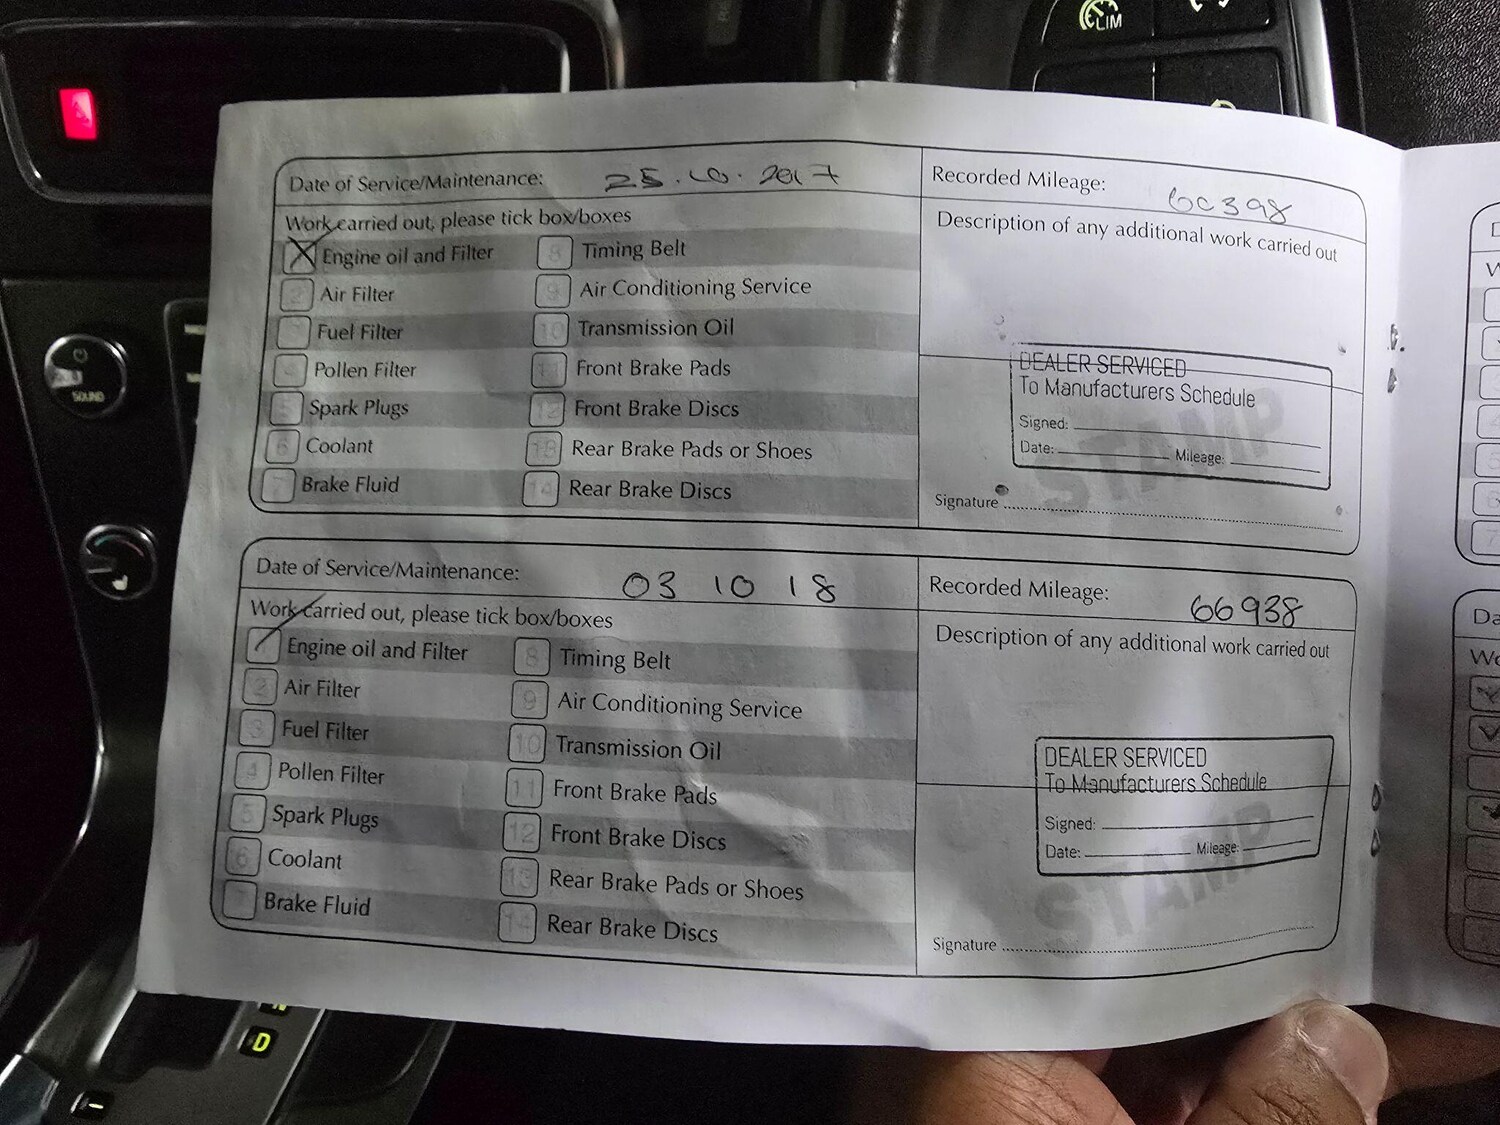 LIM
SOUND
Date of Service/Maintenance: 25.10.2017
Recorded Mileage: 60398
Work carried out, please tick box/boxes
Description of any additional work carried out
Engine oil and Filter
8 Timing Belt
2 Air Filter
9 Air Conditioning Service
Fuel Filter
10 Transmission Oil
4 Pollen Filter
11 Front Brake Pads
5 Spark Plugs
12 Front Brake Discs
6 Coolant
13 Rear Brake Pads or Shoes
7 Brake Fluid
14 Rear Brake Discs
DEALER SERVICED
To Manufacturers Schedule
Signed:
Date: Mileage:
STAMP
Signature
Date of Service/Maintenance: 03 10 18
Recorded Mileage: 66938
Work carried out, please tick box/boxes
Description of any additional work carried out
Engine oil and Filter
8 Timing Belt
2 Air Filter
9 Air Conditioning Service
3 Fuel Filter
10 Transmission Oil
4 Pollen Filter
11 Front Brake Pads
5 Spark Plugs
12 Front Brake Discs
6 Coolant
13 Rear Brake Pads or Shoes
Brake Fluid
14 Rear Brake Discs
DEALER SERVICED
To Manufacturers Schedule
Signed:
Date: Mileage:
STAMP
Signature
D